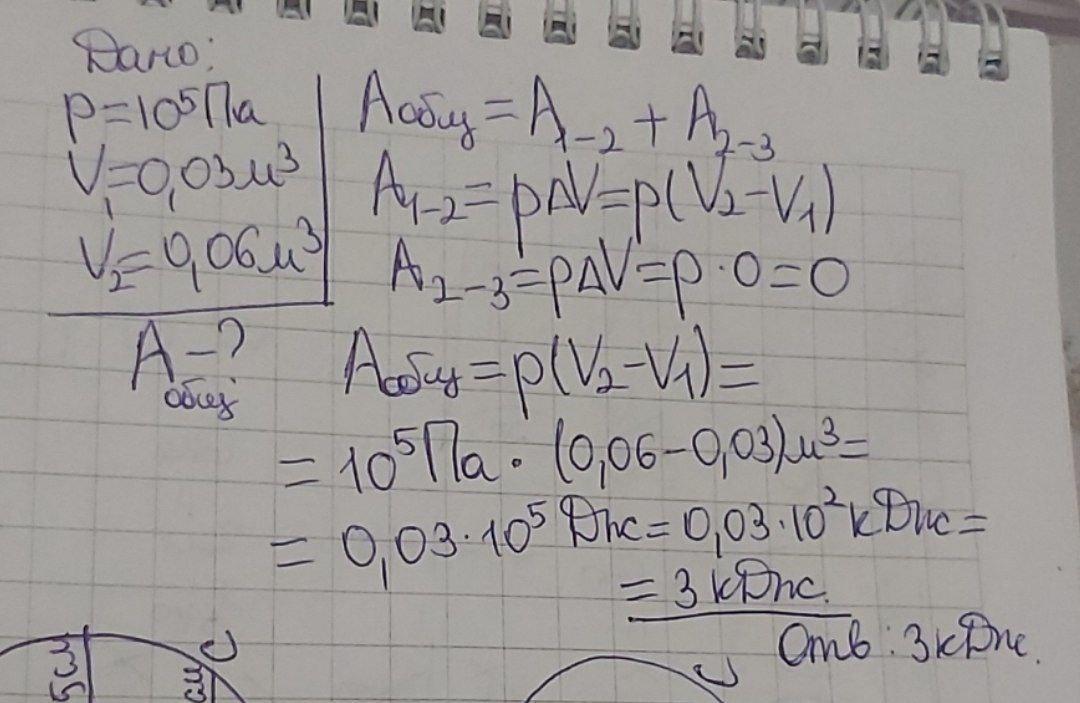 Дано:
p=10⁵Па
V₁=0,03м³
V₂=0,06м³
Aобщ-?
Aобщ=A₁₋₂+A₂₋₃
A₁₋₂=pΔV=p(V₂-V₁)
A₂₋₃=pΔV=p·0=0
Aобщ=p(V₂-V₁)=
=10⁵Па·(0,06-0,03)м³=
=0,03·10⁵Дж=0,03·10²кДж=
=3кДж.
Отв:3кДж.
5см
см
C
C